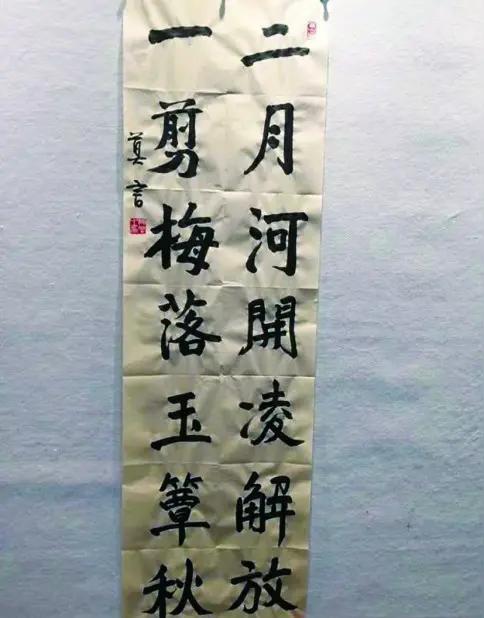 二月河開凌解放
一剪梅落玉簟秋
莫言